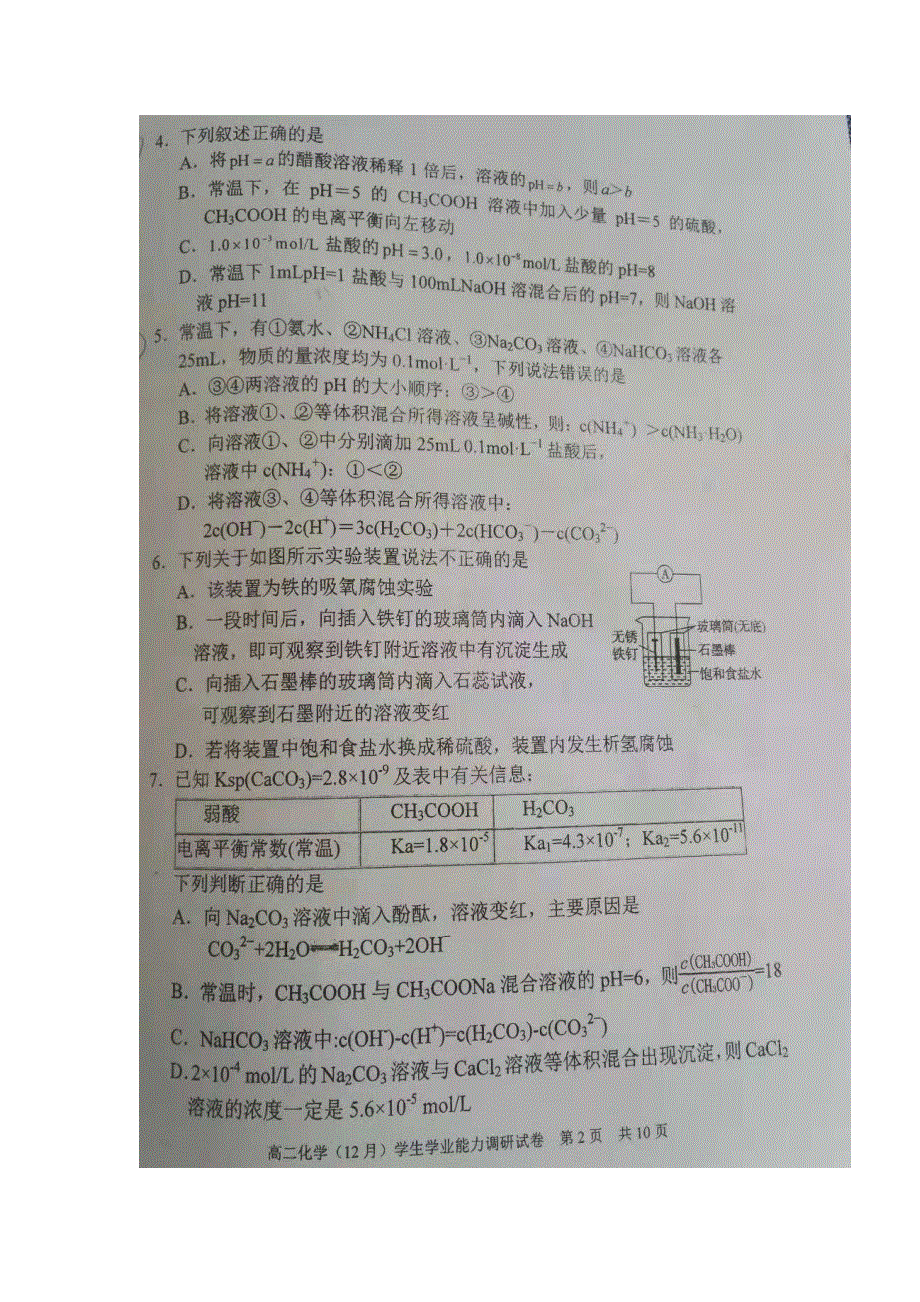 4. 下列叙述正确的是
A. 将pH=a的醋酸溶液稀释1倍后，溶液的pH=b，则a>b
B. 常温下，在 pH=5 的 CH₃COOH 溶液中加入少量 pH=5 的硫酸，
CH₃COOH 的电离平衡向左移动
C. 1.0×10⁻³mol/L 盐酸的pH=3.0，1.0×10⁻⁸mol/L盐酸的 pH=8
D. 常温下1mLpH=1 盐酸与 100mLNaOH 溶混合后的 pH=7，则 NaOH 溶
液 pH=11
5. 常温下，有①氨水、②NH₄Cl 溶液、③Na₂CO₃溶液、④NaHCO₃溶液各
25mL，物质的量浓度均为 0.1mol·L⁻¹，下列说法错误的是
A. ③④两溶液的 pH 的大小顺序：③>④
B. 将溶液①、②等体积混合所得溶液呈碱性，则：c(NH₄⁺) >c(NH₃·H₂O)
C. 向溶液①、②中分别滴加 25mL 0.1mol·L⁻¹ 盐酸后，
溶液中 c(NH₄⁺)：①<②
D. 将溶液③、④等体积混合所得溶液中：
2c(OH⁻)－2c(H⁺)＝3c(H₂CO₃)＋2c(HCO₃⁻)－c(CO₃²⁻)
6. 下列关于如图所示实验装置说法不正确的是
A. 该装置为铁的吸氧腐蚀实验
B. 一段时间后，向插入铁钉的玻璃筒内滴入 NaOH
溶液，即可观察到铁钉附近溶液中有沉淀生成
C. 向插入石墨棒的玻璃筒内滴入石蕊试液，
可观察到石墨附近的溶液变红
D. 若将装置中饱和食盐水换成稀硫酸，装置内发生析氢腐蚀
A
无锈
铁钉
玻璃筒(无底)
石墨棒
饱和食盐水
7. 已知 Ksp(CaCO₃)=2.8×10⁻⁹及表中有关信息：
弱酸 CH₃COOH H₂CO₃
电离平衡常数(常温) Ka=1.8×10⁻⁵ Ka₁=4.3×10⁻⁷；Ka₂=5.6×10⁻¹¹
下列判断正确的是
A. 向 Na₂CO₃ 溶液中滴入酚酞，溶液变红，主要原因是
CO₃²⁻+2H₂O⇌H₂CO₃+2OH⁻
B. 常温时，CH₃COOH 与 CH₃COONa 混合溶液的 pH=6，则c(CH₃COOH)/c(CH₃COO⁻)=18
C. NaHCO₃溶液中:c(OH⁻)-c(H⁺)=c(H₂CO₃)-c(CO₃²⁻)
D.2×10⁻⁴ mol/L 的 Na₂CO₃ 溶液与 CaCl₂ 溶液等体积混合出现沉淀，则 CaCl₂
溶液的浓度一定是 5.6×10⁻⁵ mol/L
高二化学（12月）学生学业能力调研试卷 第2页 共10页